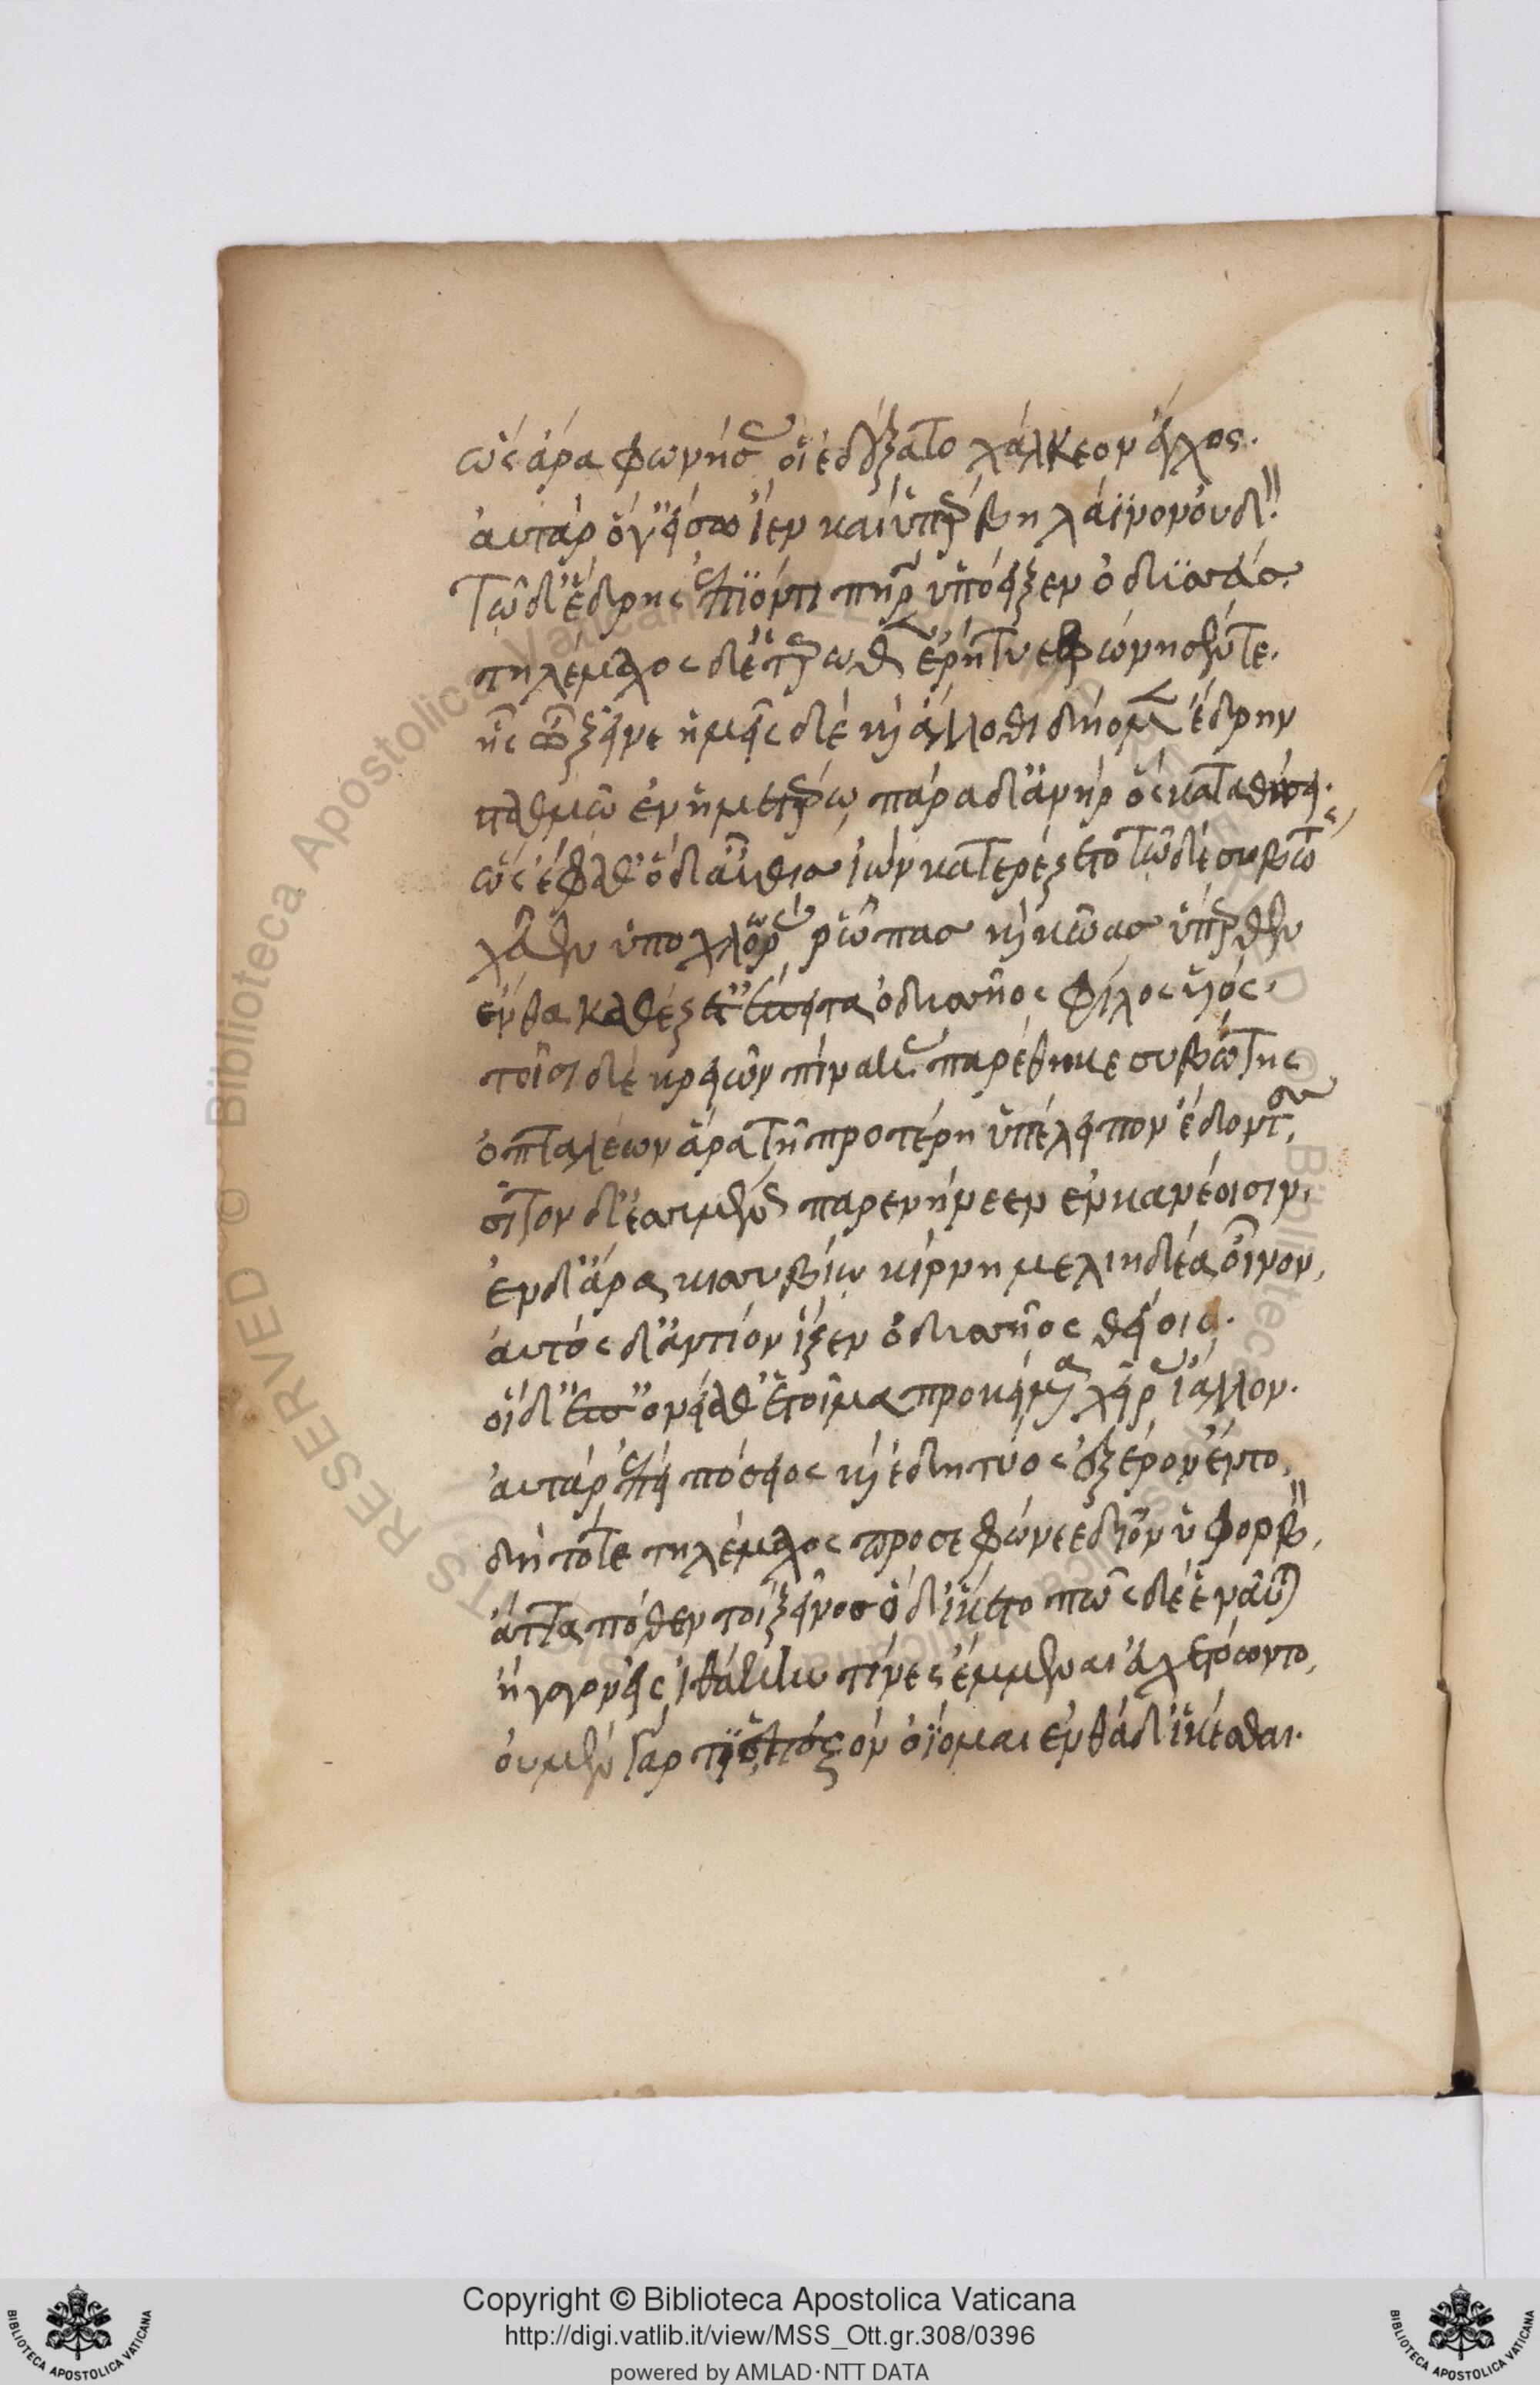 ὣς ἄρα φωνήσας οἱ ἐδέξατο χάλκεον ἔγχος.
αὐτὰρ ὅγ' εἴσω ἴεν καὶ ὑπέρβη λάϊνον οὐδόν.
τῶ δ' ἕδρης ἐπϊόντι πατὴρ ὑπόειξεν ὀδϋσσεύς.
τηλέμαχος δ' ἑτέρωθεν ἐρήτυε φώνησέν τε.
ἧς ὦ ξεῖνε ἡμεῖς δὲ καὶ ἄλλοθι δήομεν ἕδρην
σταθμῶ ἐν ἡμετέρω, πάρα δ' ἀνὴρ ὃς καταθήσει.
ὣς ἔφαθ' ὁ δ' αὖθις ἰὼν κατ' ἄρ' ἕζετο τῶ δὲ συβώτης
χεῦεν ὑπο χλωρὰς ῥῶπας καὶ κῶας ὕπερθεν
ἔνθα καθέζετ' ἔπειτα ὀδυσσῆος φίλος υἱός.
τοῖσι δὲ κρειῶν πίνακας παρέθηκε συβώτης
ὀπταλέων ἅρα τῆ προτέρη ὑπέλειπον ἔδοντες,
σῖτον δ' ἐσσυμένως παρενήνεεν ἐν κανέοισιν,
ἐν δ' ἄρα κισσυβίω κίρνη μελιηδέα οἶνον,
αὐτὸς δ' ἀντίον ἷζεν ὀδυσσῆος θείοιο.
οἱ δ' ἐπ' ὀνείαθ' ἑτοῖμα προκείμενα χεῖρας ἴαλλον.
αὐτὰρ ἐπεὶ πόσιος καὶ ἐδητύος ἐξ ἔρον ἕντο,
δὴ τότε τηλέμαχος προσεφώνεε δῖον ὑφορβόν,
ἄττα πόθεν τοι ξεῖνος ὅδ' ἵκετο πῶς δέ ἑ ναῦται
ἤγαγον εἰς ἰθάκην τίνες ἔμμεναι εὐχετόωντο,
οὐ μὲν γάρ τι ἓ πεζὸν ὀΐομαι ἐνθάδ' ἱκέσθαι.
Copyright © Biblioteca Apostolica Vaticana
http://digi.vatlib.it/view/MSS_Ott.gr.308/0396
powered by AMLAD·NTT DATA